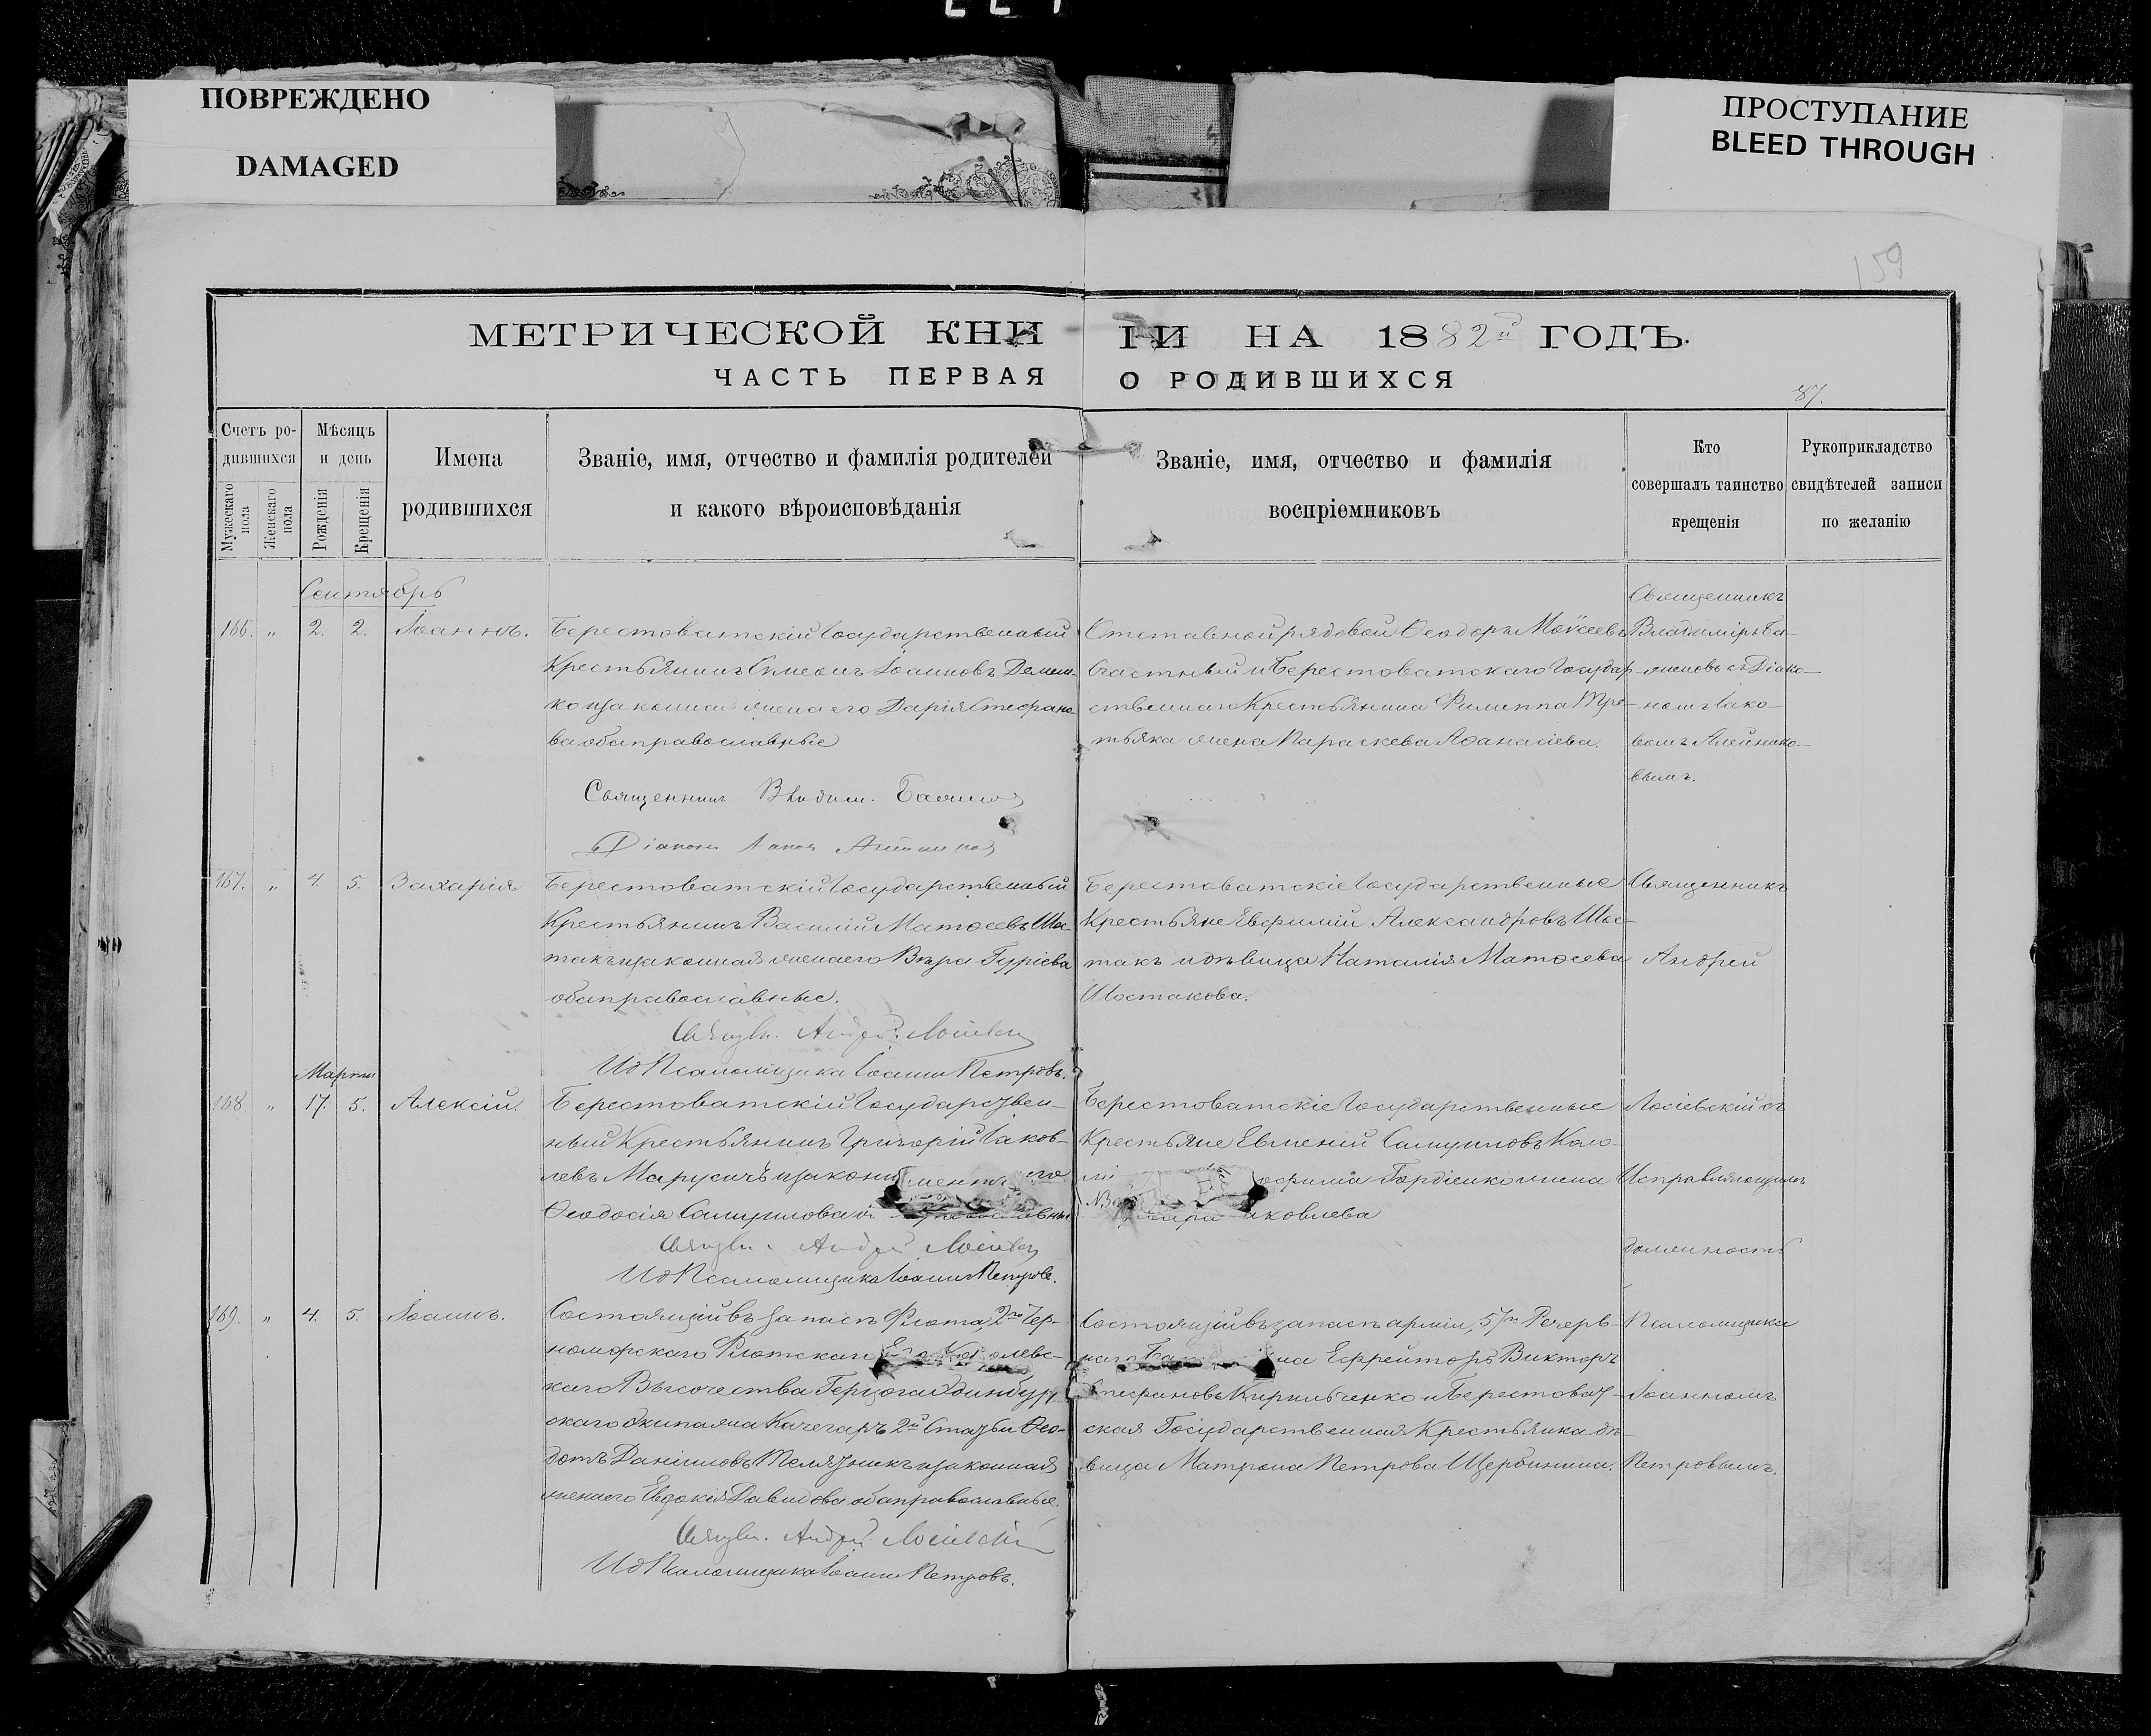 ПОВРЕЖДЕНО
DAMAGED
ПРОСТУПАНИЕ
BLEED THROUGH
159
МЕТРИЧЕСКОЙ КНИ ГИ НА 1882й ГОДЪ.
ЧАСТЬ ПЕРВАЯ О РОДИВШИХСЯ
87.
Счетъ ро-
дившихся
Мужескаго пола
Женскаго пола
Мѣсяцъ
и день
Рожденія
Крещенія
Имена
родившихся
Званіе, имя, отчество и фамилія родителей
и какого вѣроисповѣданія
Званіе, имя, отчество и фамилія
воспріемниковъ
Кто
совершалъ таинство
крещенія
Рукоприкладство
свидѣтелей записи
по желанію
Сентябрь
166. " 2. 2. Іоаннъ.
Берестоватскій Государственный
Крестьянинъ Симеонъ Іоанновъ Демен-
ко и законная жена его Дарія Стефано-
ва оба православные
Священник Владим. Баянов
Діаконъ Іаков
Отставной рядовой Ѳеодоръ Моѵсеевъ
Счастный и Берестоватскаго Государ-
ственнаго Крестьянина Филиппа Тре-
тьяка жена Параскева Аѳанасіева.
Священникъ
Владиміръ Ба-
яновъ съ Діако-
номъ Іако-
вомъ Алейнико-
вымъ.
167. " 4. 5. Захарія
Берестоватскій Государственный
Крестьянинъ Василій Матѳеевъ Шос-
такъ и законная жена его Вѣра Гуріева
оба православные.
Священ. Андрей Лосіевскій
Ид Псаломщика Іоаннъ Петровъ.
Берестоватскіе Государственные
Крестьяне Евфимій Александровъ Шос-
такъ и дѣвица Наталія Матѳеева
Шостакова.
Священникъ
Андрей
Марта
168 " 17. 5. Алексій.
Берестоватскій Государствен-
ный Крестьянинъ Григорій Іаков-
левъ Марусичъ и законн жена его
Ѳеодосія Самуилова православны
Священ. Андрей Лосіевскій
Ид Псаломщика Іоаннъ Петровъ.
Берестоватскіе Государственные
Крестьяне Евгеній Самуиловъ Коло-
офима Гордіенко жена
яковлева
Лосіевскій съ
Исправляющимъ
должность
169. " 4. 5. Іоаннъ.
Состоящій въ запасѣ Флота, 2го Чер-
номорскаго Флотскаго Его Королевс-
каго Высочества Герцога Эдинбург-
скаго экипажа Кочегаръ 2й Статьи Ѳео-
дотъ Даніиловъ Телятникъ и законная
жена его Евдокія Давидова оба православные.
Священ. Андрей Лосіевскій
Ид Псаломщика Іоаннъ Петровъ.
Состоящій въ запасѣ арміи, 57го Резерв-
наго Ба на Ефрейторъ Викторъ
Стефановъ Кирильченко и Берестоват-
ская Государственная Крестьянка дѣ-
вица Матрона Петрова Щербинина.
Псаломщика
Іоанномъ
Петровымъ.